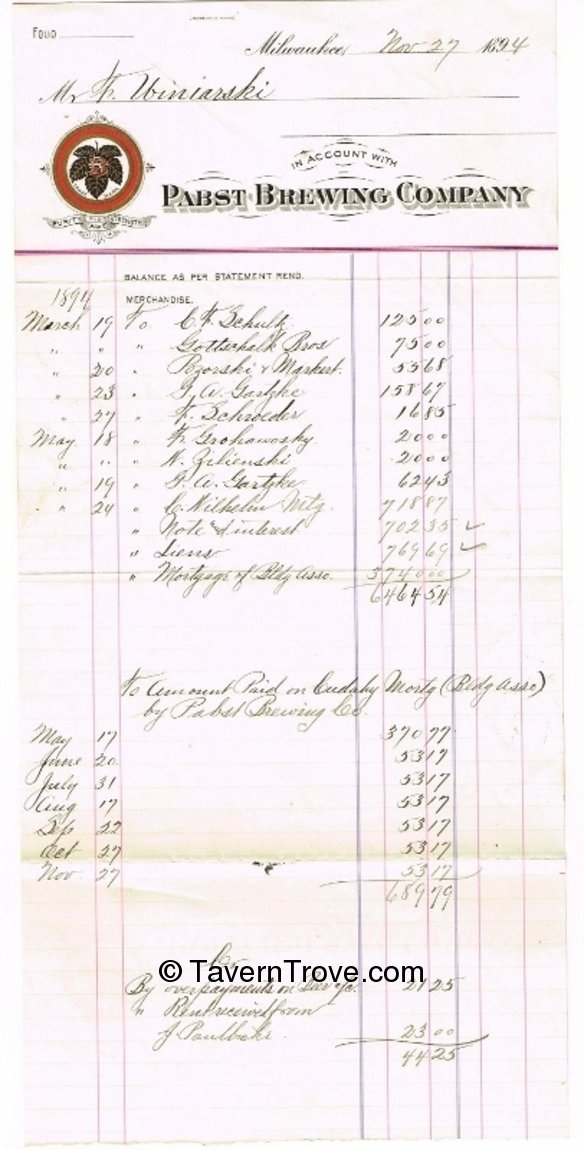 Folio
Milwaukee, Nov 27 1894
Mr F. Winiarski
IN ACCOUNT WITH
PABST BREWING COMPANY
PURITY STRENGTH
AND
BALANCE AS PER STATEMENT REND.
1894
MERCHANDISE.
March 19 To C. F. Schultz 125 00
" " " Gottschalk Bros 75 00
" 20 " Pzorski & Markert. 55 68
" 23 " G. A. Gartzke 158 67
" 27 " F. Schroeder 16 85
May 18 " F. Grohowosky 20 00
" " " N. Zilienski 20 00
" 19 " G. A. Gartzke 62 43
" 24 " C. Wilhelm Mtg. 718 87
" Note & interest 702 35 ✓
" Liens 769 69 ✓
" Mortgage of Bldg Asso. 3740 00
6464 54
To Amount Paid on Cudahy Mortg (Bldg Asso)
by Pabst Brewing Co.
May 17 370 77
June 20 53 17
July 31 53 17
Aug 17 53 17
Sep 22 53 17
Oct 27 53 17
Nov 27 53 17
689 79
Cr
© TavernTrove.com
By overpayments on Beer a/c. 21 25
" Rent received from
J Paulbicki 23 00
44 25